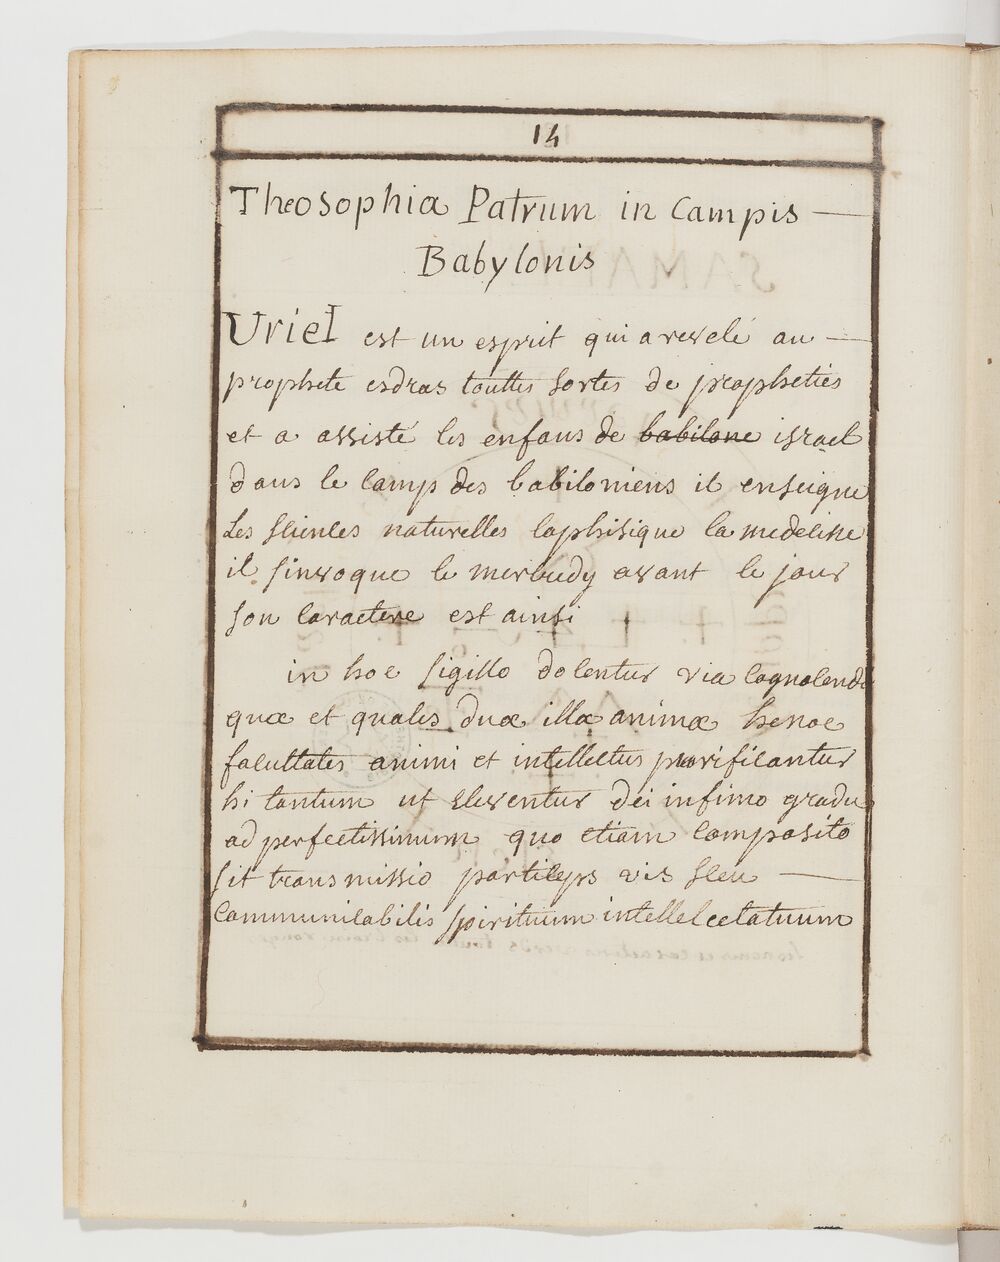 14
Theosophia Patrum in Campis
Babylonis
Uriel est un esprit qui a revelé au
prophete esdras touttes sortes de propheties
et a assisté les enfans de babilone israel
dans le camp des babiloniens il enseigne
les sciences naturelles laphisique la medecine
il sinvoque le mercredy avant le jour
son caractere est ainsi
in hoc sigillo docentur via cognocendi
quæ et qualis duæ illæ animæ henoc
facultates animi et intellectus purificantur
hi tantum ut eleventur dei infimo gradu
ad perfectissimum quo etiam composito
sit transmissio vis seu
communicabilis spirituum